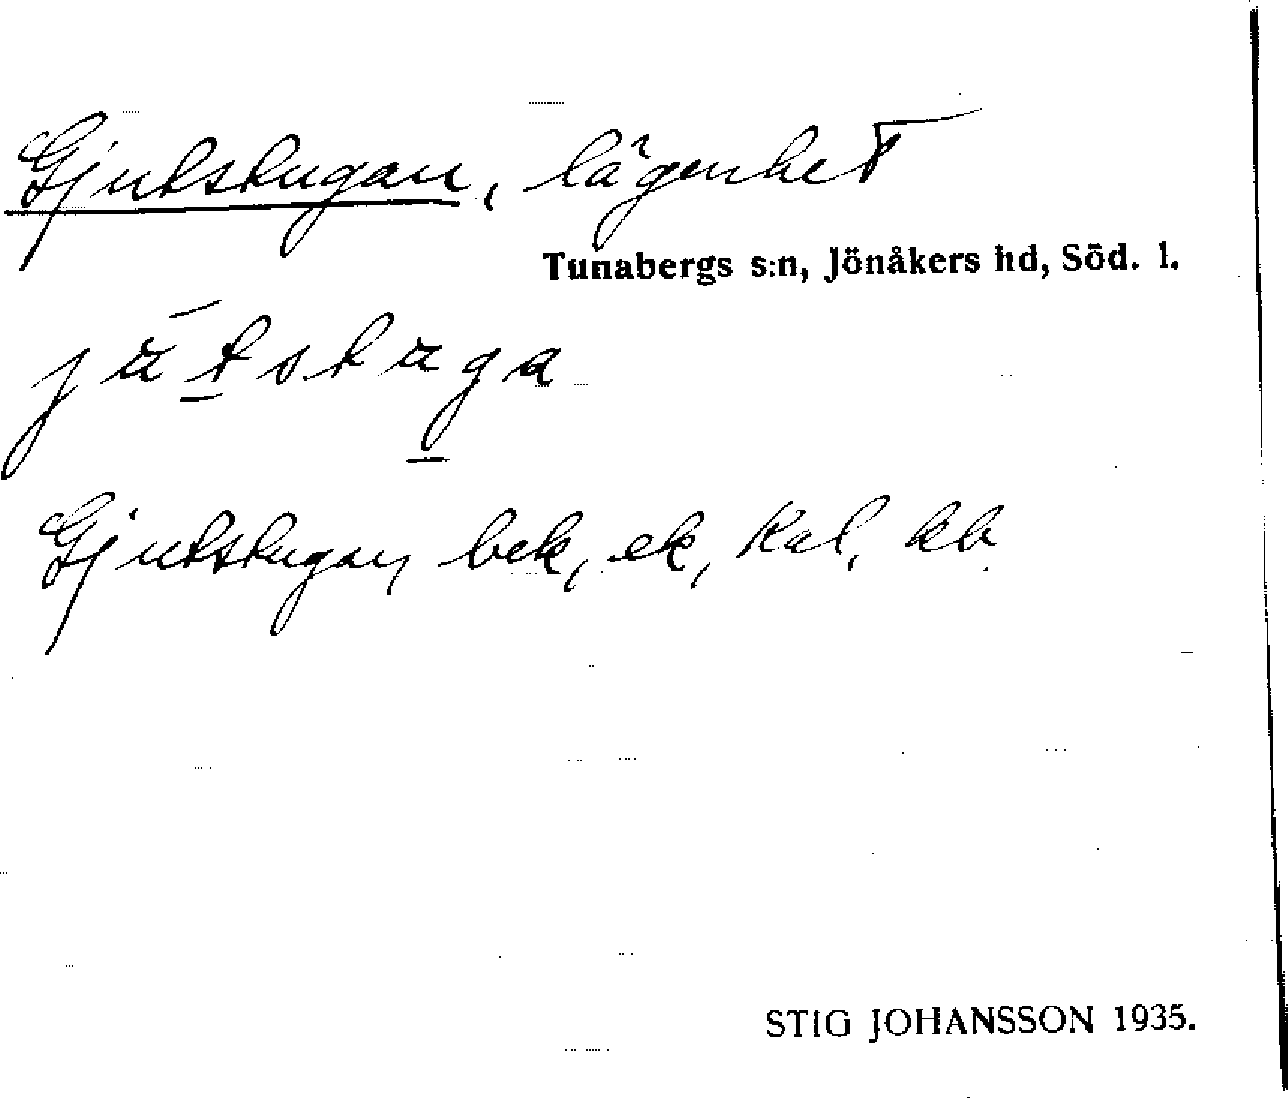 Gjutstugan, lägenhet
Tunabergs s:n, Jönåkers hd, Söd. l.
jutstuga
Gjutstugan, bek, ek, Kal, kb.
STIG JOHANSSON 1935.